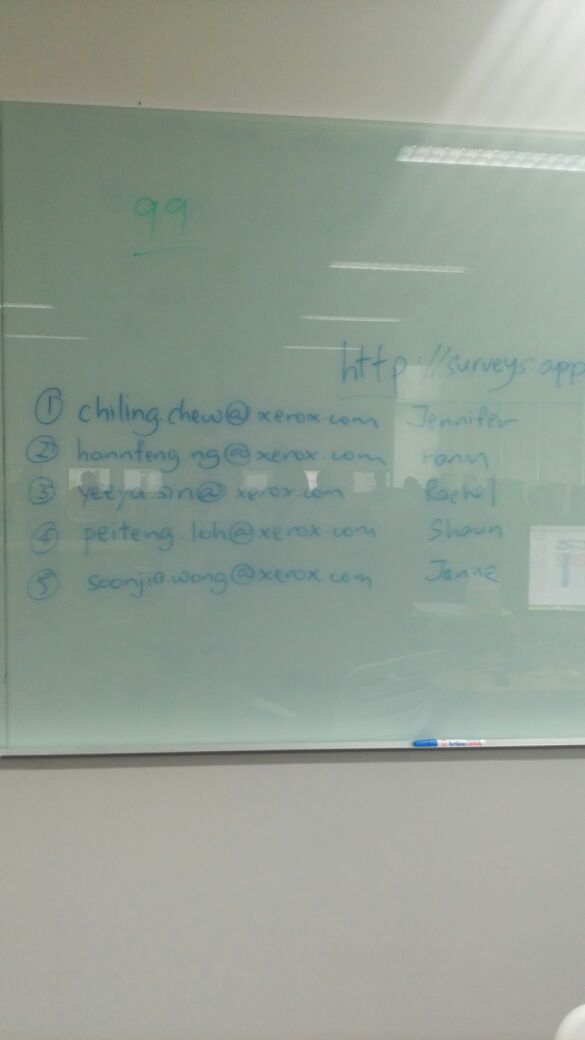 99
http://surveys.app
① chiling.chew@xerox.com Jennifer
② hannfeng.ng@xerox.com Hann
③ yeeya.sin@xerox.com Rachel
④ peiteng.loh@xerox.com Shaun
⑤ soonjia.wong@xerox.com Janne
Artline